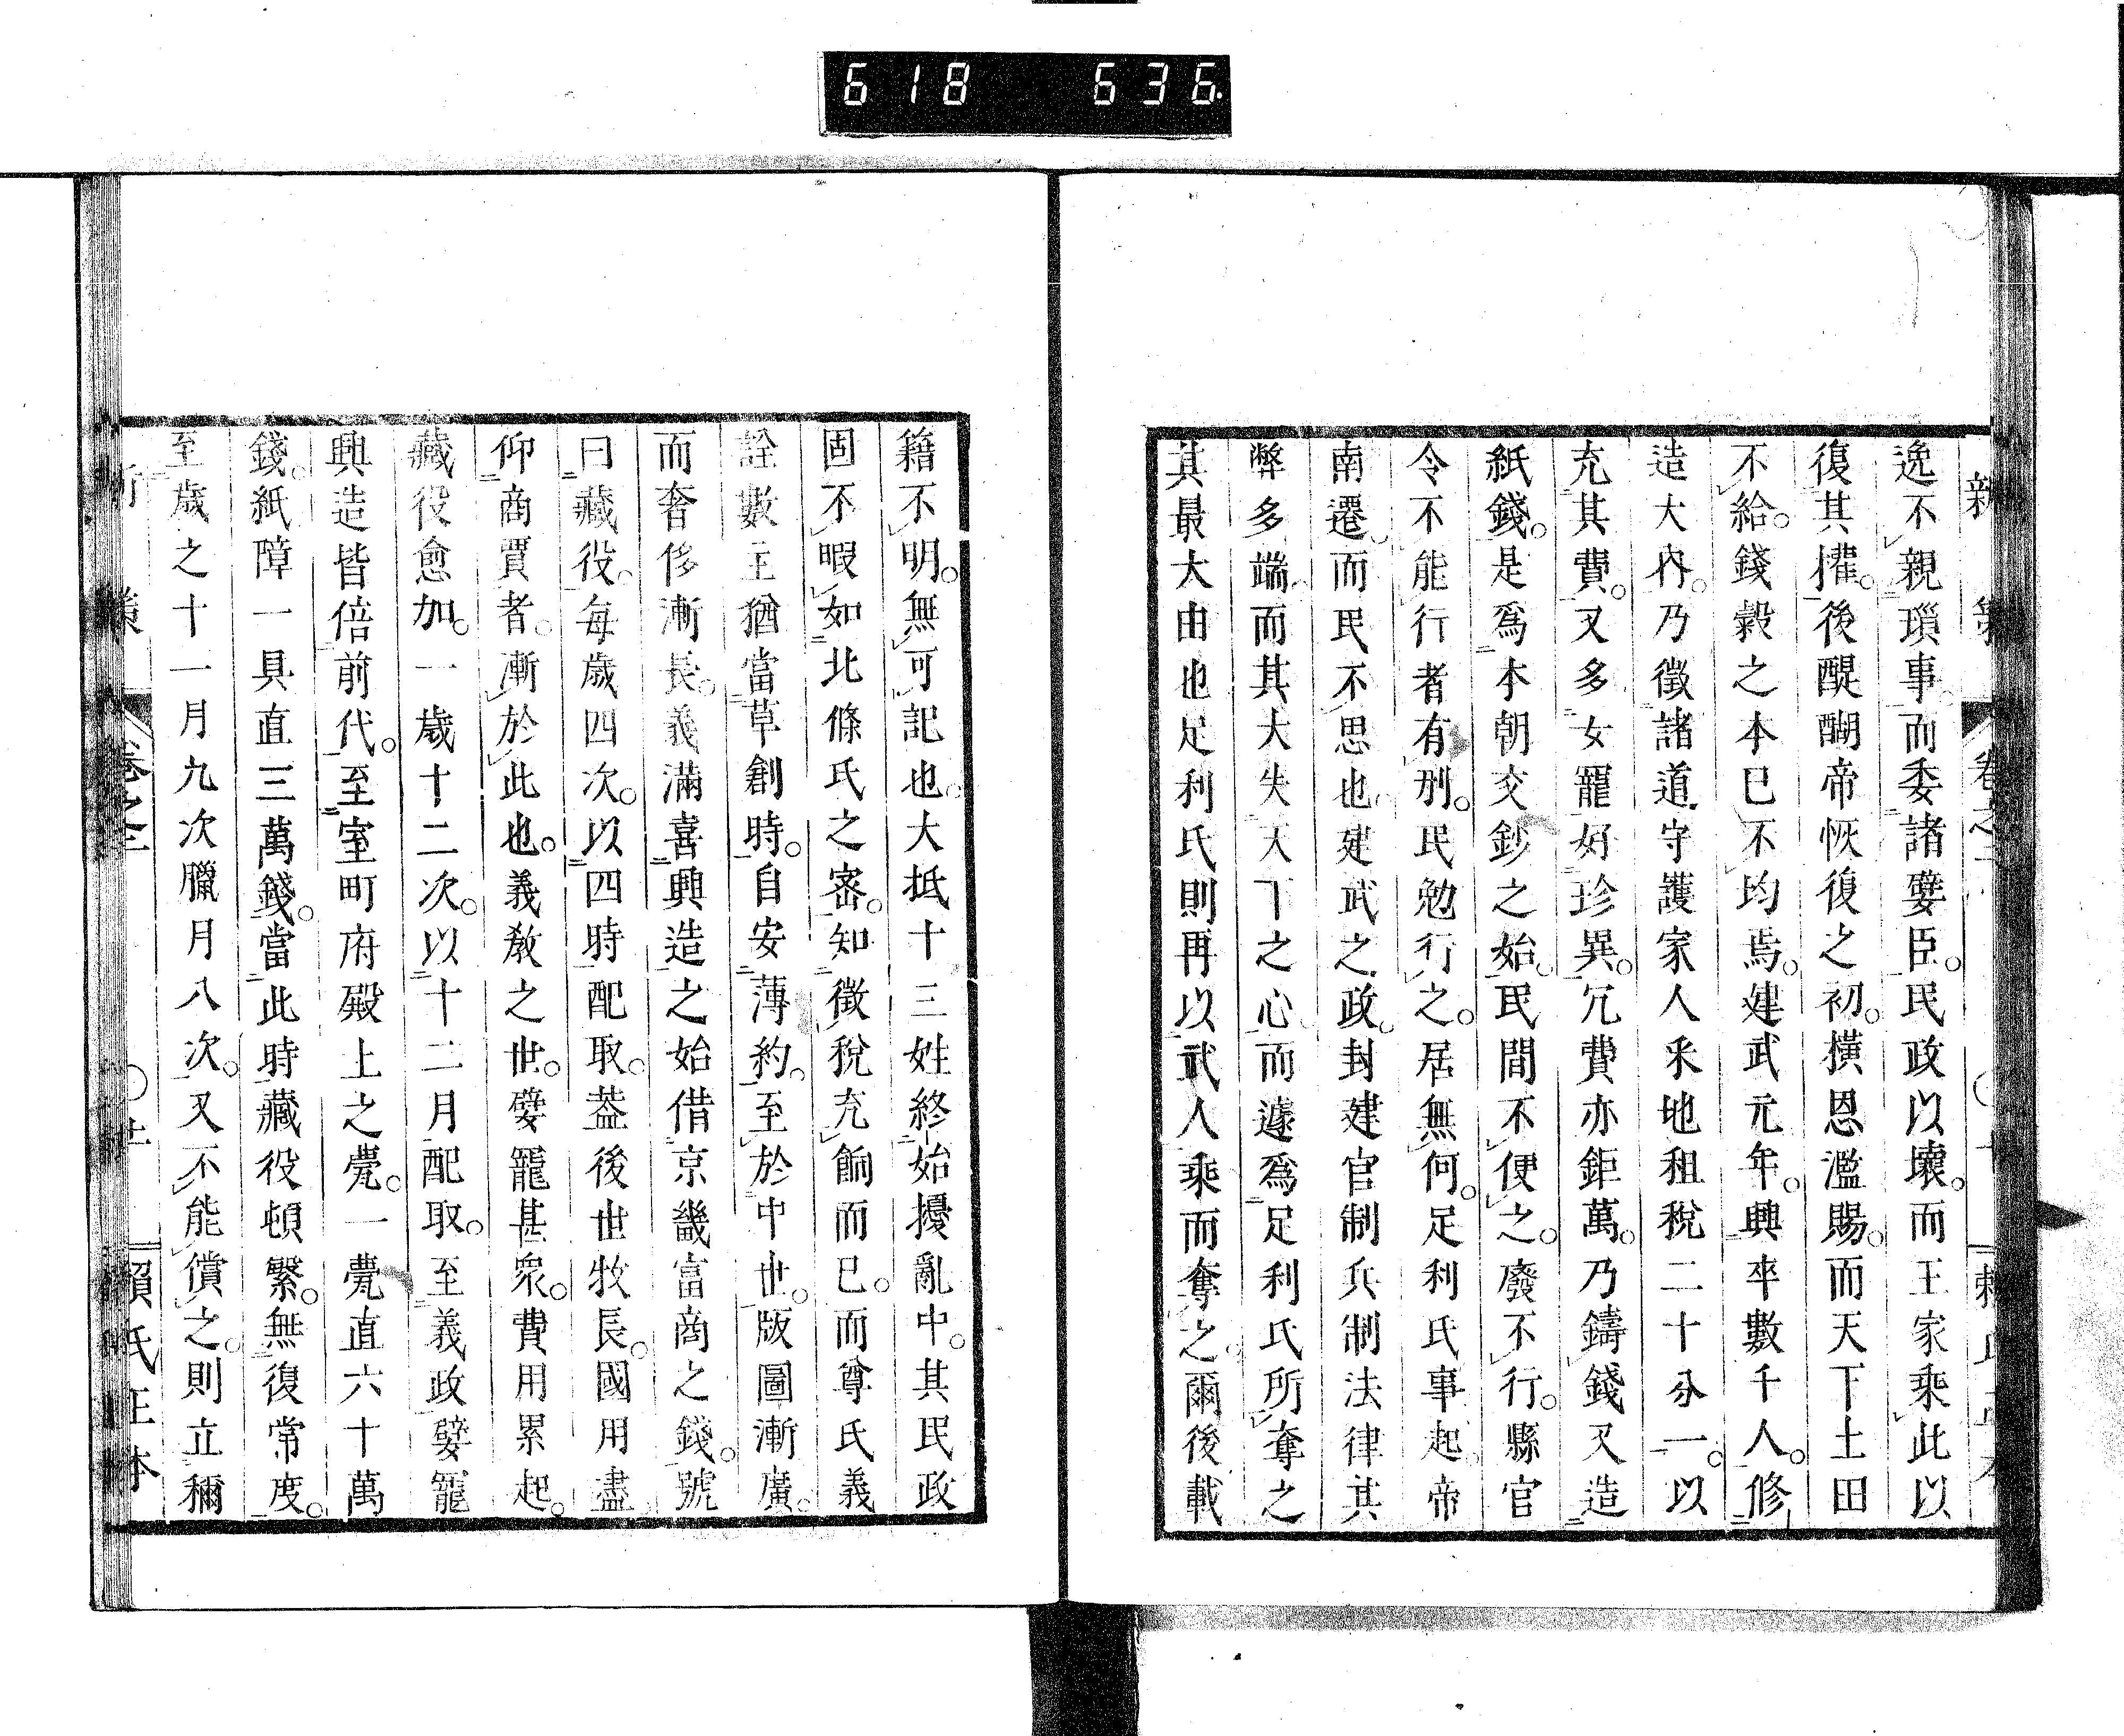 618 636
逸不親瑣事而委諸嬖臣。民政以壞。而王家乘此以
復其權。後醍醐帝恢復之初。橫恩濫賜。而天下土田
不給。錢穀之本已不均焉。建武元年。興卒數千人。修
造大內。乃徵諸道守護家人釆地租稅二十分一。以
充其費。又多女寵好珍異。冗費亦鉅萬。乃鑄錢又造
紙錢。是爲本朝交鈔之始。民間不便之。廢不行。縣官
令不能行者有刑。民勉行之。居無何。足利氏事起。帝
南遷。而民不思也。建武之政。封建官制兵制法律其
弊多端。而其大失天下之心。而遽爲足利氏所奪之
其最大由也足利氏則再以武人乘而奪之。爾後載
籍不明。無可記也。大抵十三姓終始擾亂中。其民政
固不暇如北條氏之審。知徵稅充餉而已。而尊氏義
詮數主猶當草創時。自安薄約。至於中世。版圖漸廣。
而奢侈漸長。義滿喜興造之始借京畿富商之錢。號
曰藏役。每歲四次。以四時配取。葢後世牧長。國用盡
仰商賈者。漸於此也。義敎之世。嬖寵甚衆。費用累起。
藏役愈加。一歲十二次。以十二月配取。至義政嬖寵
興造皆倍前代。至室町府殿上之甍。一甍直六十萬
錢。紙障一具直三萬錢。當此時藏役頓繁。無復常度。
至歲之十一月九次臘月八次。又不能償之。則立稱
卷之
賴氏正本